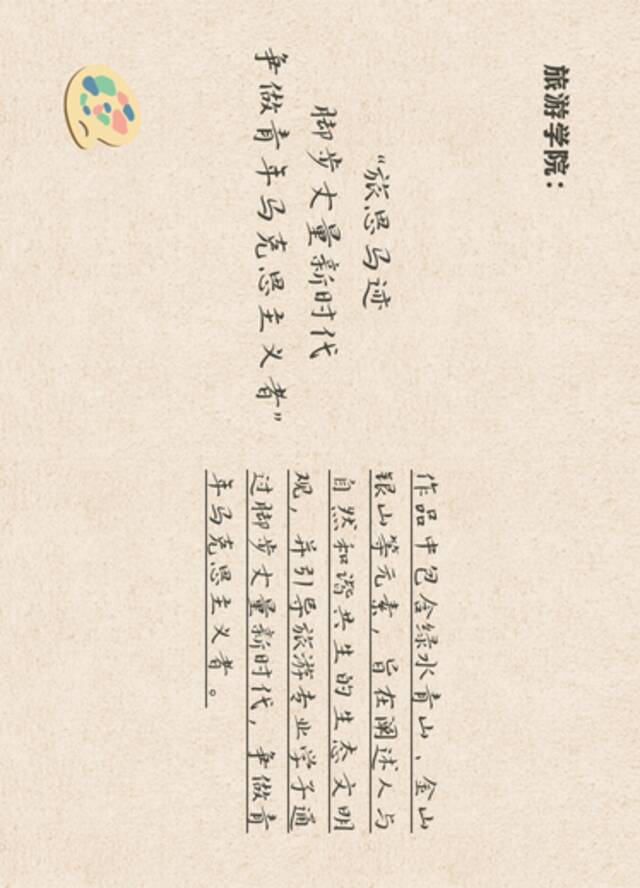 旅游学院：
“旅思马迹
脚步丈量新时代
争做青年马克思主义者”
作品中包含绿水青山、金山
银山等元素，旨在阐述人与
自然和谐共生的生态文明
观，并引导旅游专业学子通
过脚步丈量新时代，争做青
年马克思主义者。